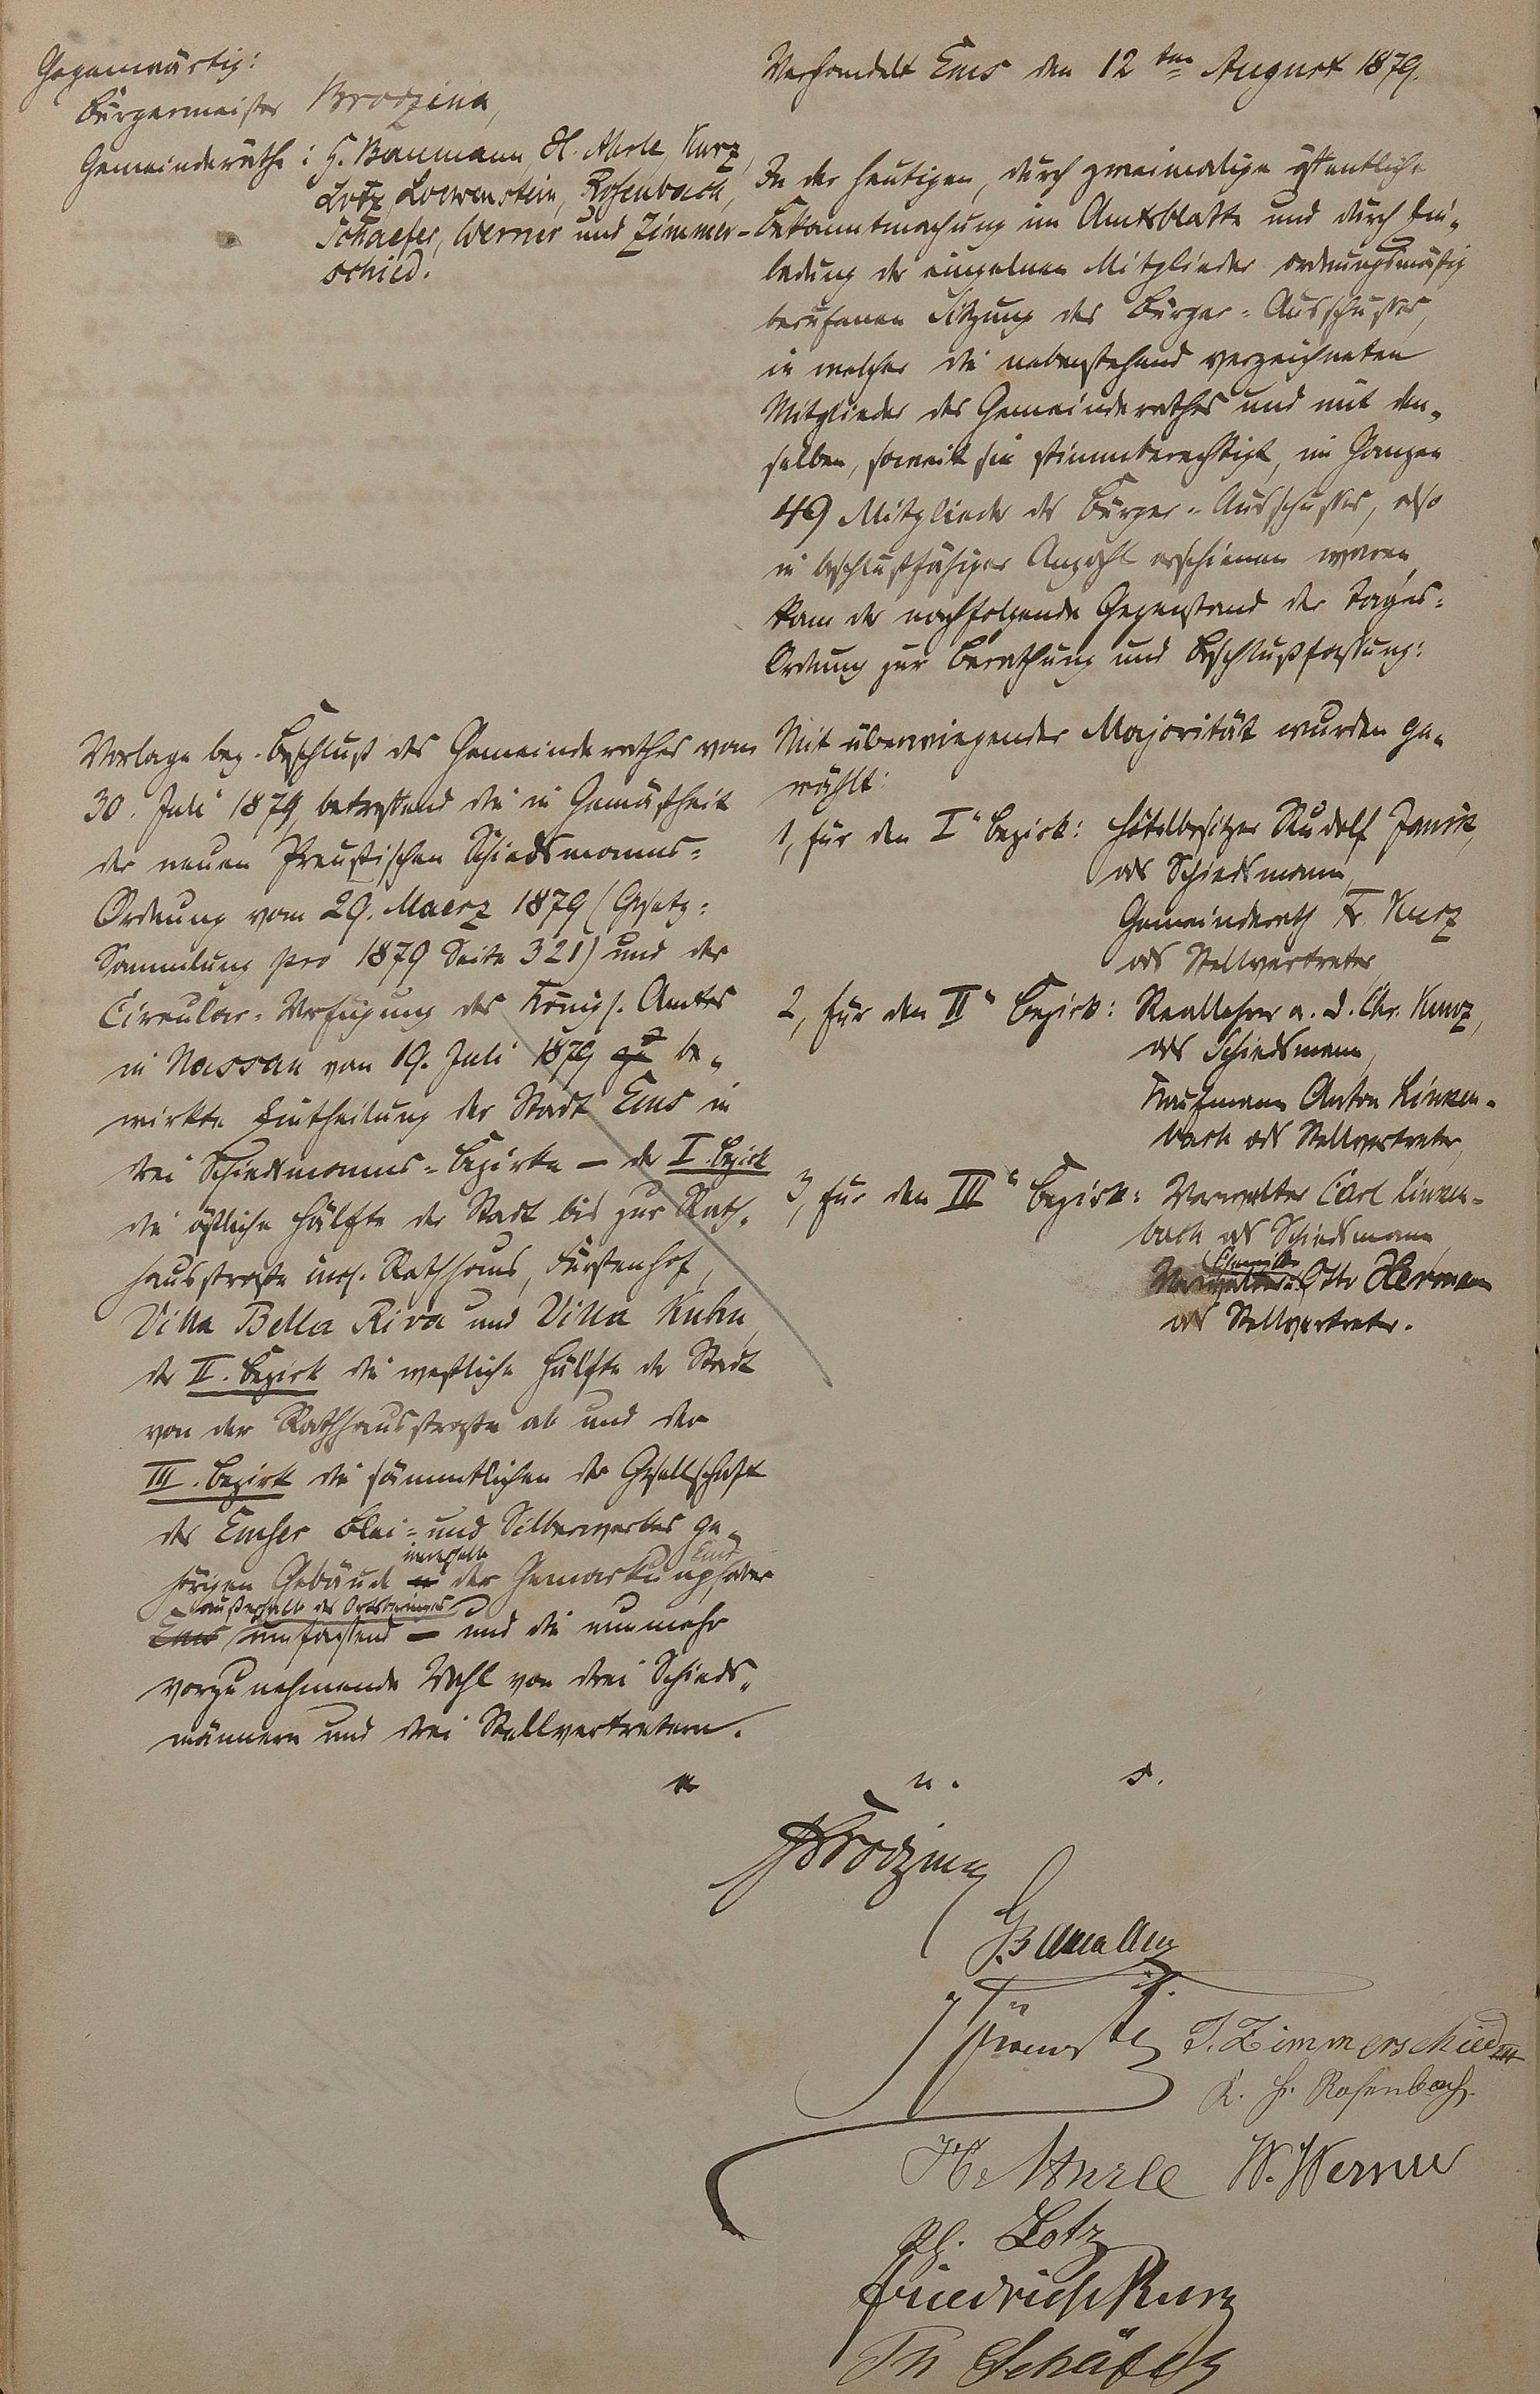 Gegenwärtig:
Bürgermeister Brodzina,
Gemeinderäthe: G. Baumann, H. Ahrle, Kurz,
Lotz, Loewenstein, Rosenbach,
Schaefer, Werner und Zimmer-
schied.
Verhandelt Ems den 12ten August 1879.
In der heutigen, durch zweimalige öffentliche
Bekanntmachung im Amtsblatte und durch Ein-
ladung der einzelnen Mitglieder ordnungsmäßig
berufenen Sitzung des Bürger-Ausschusses,
in welcher die nebenstehend verzeichneten
Mitglieder des Gemeinderathes und mit den-
selben, soweit sie stimmberechtigt, im Ganzen
49 Mitglieder des Bürger-Ausschusses, also
in beschlußfähiger Anzahl erschienen waren,
kam der nachfolgende Gegenstand der Tages-
Ordnung zur Berathung und Beschlußfassung:
Vorlage bez. Beschluß des Gemeinderathes vom
30. Juli 1879, betreffend die in Gemäßheit
der neuen Preußischen Schiedsmanns-
Ordnung vom 29. Maerz 1879 (Gesetz-
Sammlung pro 1879 Seite 321) und der
Circular-Verfügung des Königl. Amtes
in Nassau vom 19. Juli 1879 be-
wirkte Eintheilung der Stadt Ems in
drei Schiedsmanns-Bezirke – der I. Bezirk
die östliche Hälfte der Stadt bis zur Rath-
hausstraße incl. Rathhaus, Fürstenhof,
Villa Bella Riva und Villa Kuhn,
der II. Bezirk die westliche Hälfte der Stadt
von der Rathhausstraße ab und der
III. Bezirk die sämmtlichen der Gesellschaft
des Emser Blei- und Silberwerkes ge-
hörigen Gebäude in innerhalb der Gemarkung Ems, aber
Ems außerhalb des Ortsberinges umfassend – und die nunmehr
vorzunehmende Wahl von drei Schieds-
männern und drei Stellvertretern.
Mit überwiegender Majorität wurden ge-
wählt:
1, für den I. Bezirk: Hôtelbesitzer Rudolf Janik,
als Schiedsmann,
Gemeinderath Fr. Kurz
als Stellvertreter,
2, für den II. Bezirk: Reallehrer a. D. Chr. Kunz,
als Schiedsmann,
Kaufmann Anton Linken-
bach als Stellvertreter,
3, für den III. Bezirk: Verwalter Carl Linken-
bach als Schiedsmann,
Verwalter Chemiker Otto Hermann
als Stellvertreter.
u. s.
Brodzina
G. Baumann
J. Zimmerschied III
K. H. Rosenbach
H. Ahrle W. Werner
Ph. Lotz
Friedrich Kurz
Th Schäfer